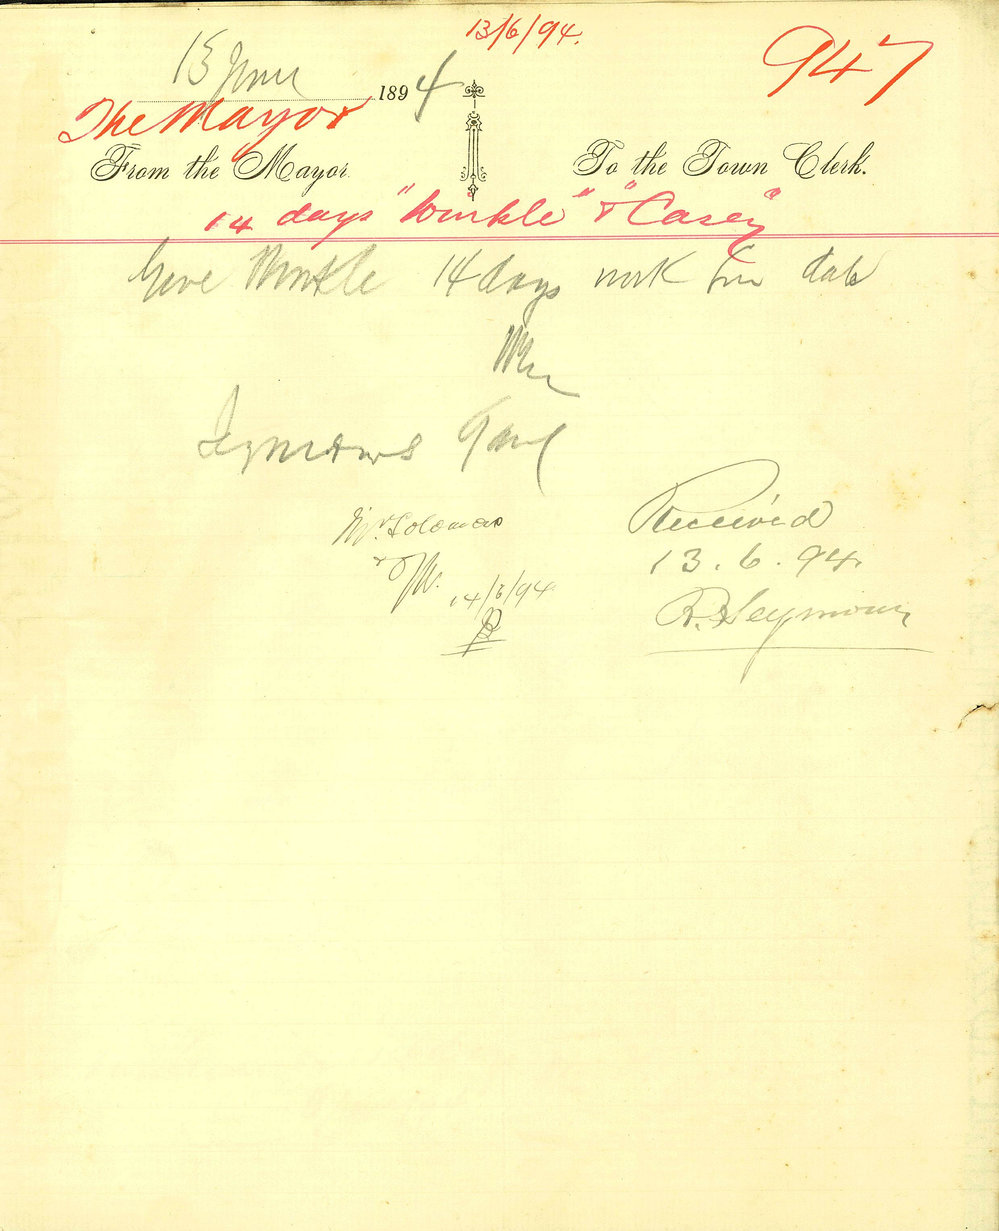 13/6/94.
947
13 June 1894
The Mayor
From the Mayor
To the Town Clerk.
14 days "Winkle" & "Casey"
Give Winkle 14 days work from date
Seymours Gang
Mr. Solomon
14/6/94
Received
13.6.94.
R. Seymour